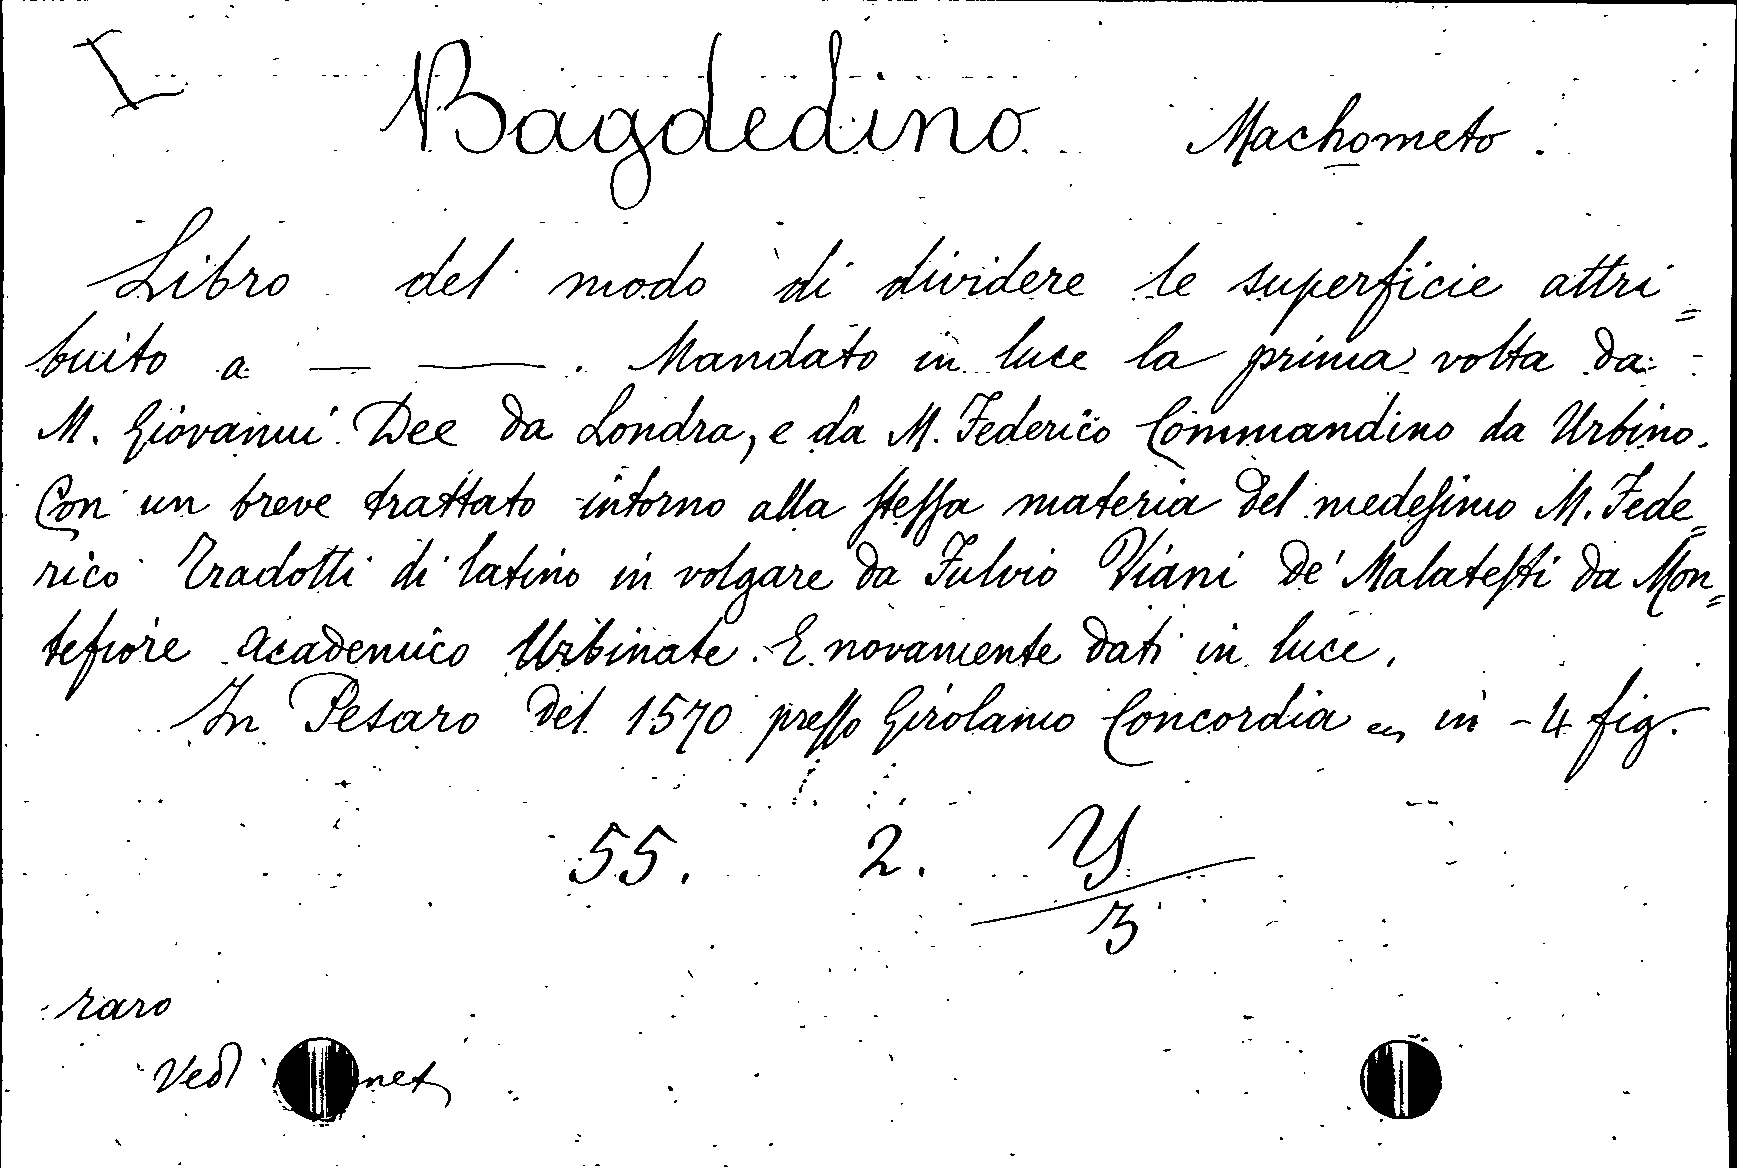 I Bagdedino Machometo.
Libro del modo di dividere le superficie attri=
buito a — —. Mandato in luce la prima volta da
M. Giovanni Dee da Londra, e da M. Federico Commandino da Urbino.
Con un breve trattato intorno alla steſſa materia del medeſimo M. Fede=
rico Tradotti di latino in volgare da Fulvio Viani de' Malateſti da Mon=
tefiore Academico Urbinate. E novamente dati in luce.
In Pesaro del 1570 preſſo Girolamo Concordia in - 4 fig.
55. 2. Y/3
raro
Vedi